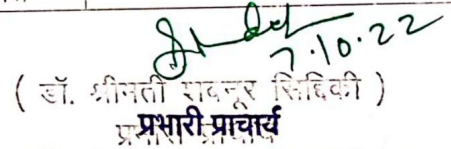 7.10.22
( डॉ. श्रीमती शबनूर सिद्दिकी )
प्रभारी प्राचार्य